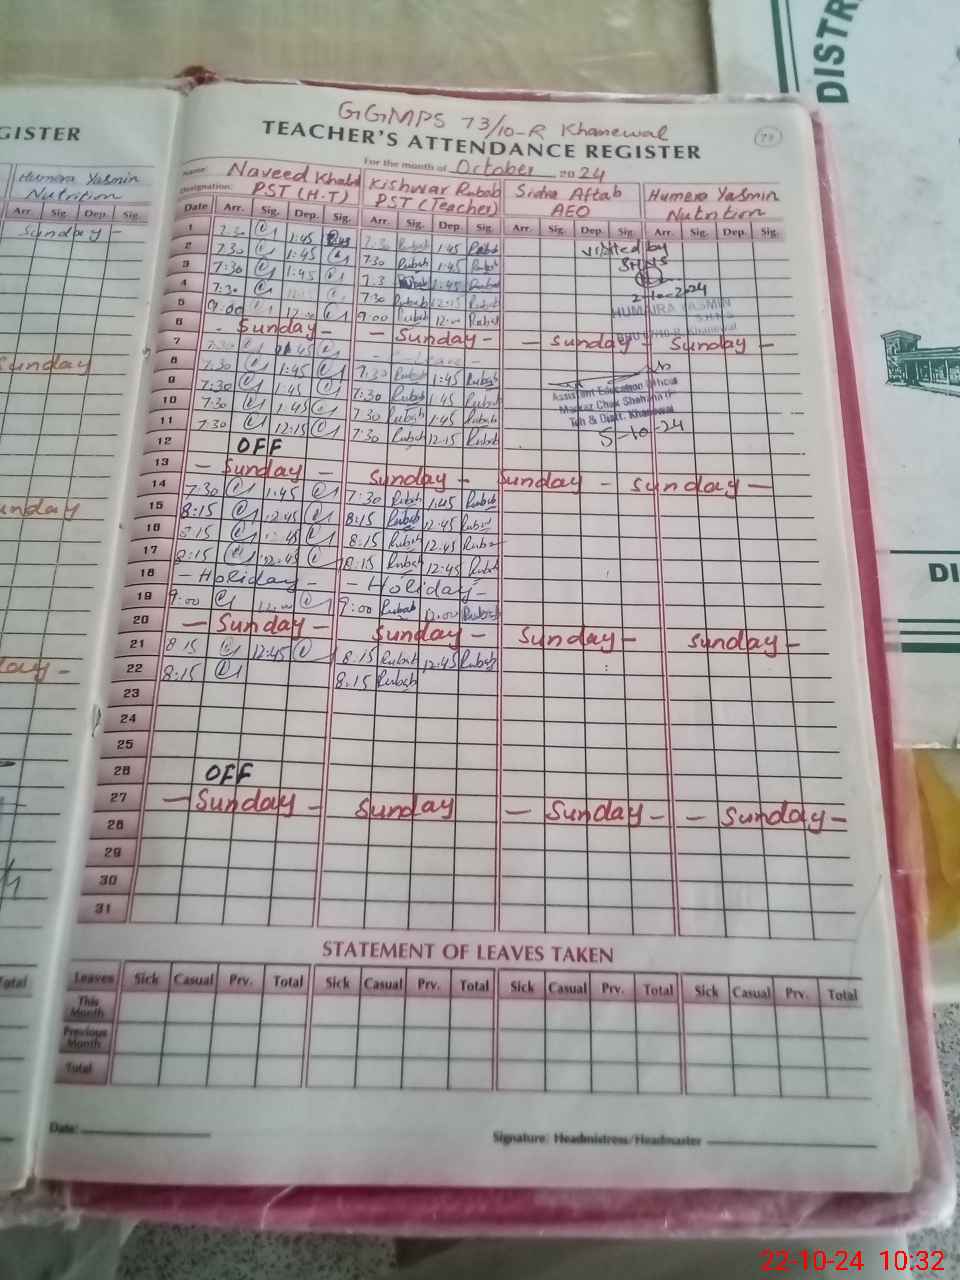 GISTER
Humera Yasmin
Nutrition
Arr. Sig. Dep. Sig.
Sunday -
Sunday
unday
day -
Total
DISTR
DI
GGMPS 73/10-R Khanewal
TEACHER'S ATTENDANCE REGISTER
For the month of October 2024
Name: Naveed Khalid Kishwar Rubab Sidra Aftab Humera Yasmin
Designation: PST (H.T) PST (Teacher) AEO Nutrition
Date Arr. Sig. Dep. Sig. Arr. Sig. Dep. Sig. Arr. Sig. Dep. Sig. Arr. Sig. Dep. Sig.
1 7:30 1:45 7:30 Rubab 1:45 Rubab visited by
2 7:30 1:45 7:30 Rubab 1:45 Rubab SHNS
3 7:30 1:45 7:3 Rubab 1:45 Rubab 2-10-2024
4 7:30 7:30 Rubab 12:15 Rubab HUMAIRA YASMIN
5 9:00 12:00 9:00 Rubab 12:00 Rubab
6 - Sunday - - Sunday - - Sunday - Sunday -
7 7:30 1:45 - Leave -
8 7:30 1:45 7:30 Rubab 1:45 Rubab
9 7:30 1:45 7:30 Rubab 1:45 Rubab Assistant Education Officer
10 7:30 1:45 7:30 Rubab 1:45 Rubab Teh & Distt. Khanewal
11 7:30 12:15 7:30 Rubab 12:15 Rubab 5-10-24
12 OFF
13 - Sunday - Sunday - Sunday - Sunday -
14 7:30 1:45 7:30 Rubab 1:45 Rubab
15 8:15 12:45 8:15 Rubab 12:45 Rubab
16 8:15 12:45 8:15 Rubab 12:45 Rubab
17 8:15 12:45 8:15 Rubab 12:45 Rubab
18 - Holiday - - Holiday -
19 9:00 12:00 9:00 Rubab 12:00 Rubab
20 - Sunday - Sunday - Sunday - Sunday -
21 8:15 12:45 8:15 Rubab 12:45 Rubab
22 8:15 8:15 Rubab
23
24
25
26 OFF
27 - Sunday - Sunday - Sunday - - Sunday -
28
29
30
31
STATEMENT OF LEAVES TAKEN
Leaves Sick Casual Prv. Total Sick Casual Prv. Total Sick Casual Prv. Total Sick Casual Prv. Total
This Month
Previous Month
Total
Date:
Signature: Headmistress/Headmaster
22-10-24 10:32